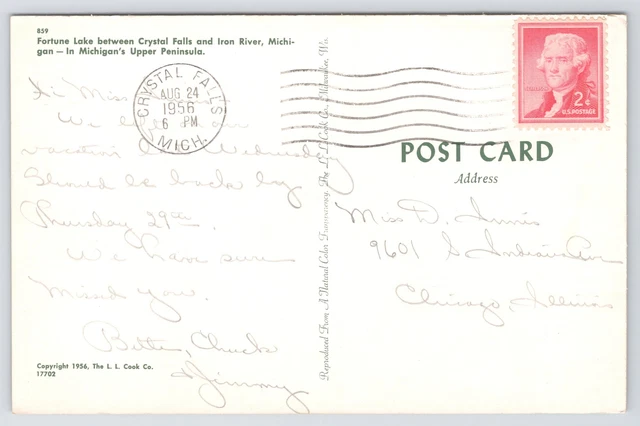 859
Fortune Lake between Crystal Falls and Iron River, Michi-
gan — In Michigan's Upper Peninsula.
Hi Miss
We
vacation Wednesday
Should be back by
Thursday 29th.
We have sure
missed you.
Chuck
& Jimmy
Copyright 1956, The L. L. Cook Co.
17702
Reproduced From A Natural Color Transparency, The L. L. Cook Co., Milwaukee, Wis.
CRYSTAL FALLS
AUG 24
1956
6 PM
MICH.
2¢
U.S. POSTAGE
POST CARD
Address
Miss D. Innis
9601 S Indiana Ave
Chicago, Illinois